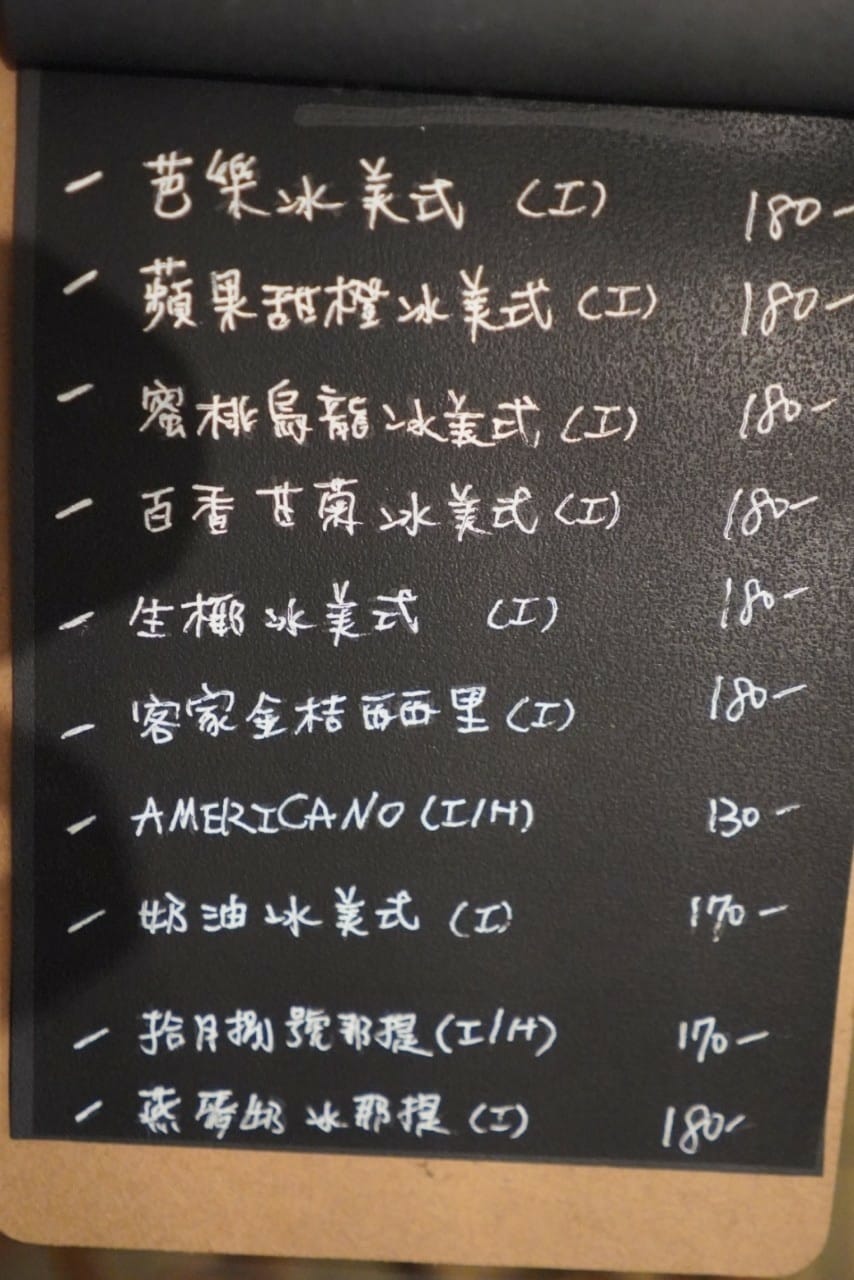 - 芭樂冰美式 (I) 180-
- 蘋果甜橙冰美式 (I) 180-
- 蜜桃烏龍冰美式 (I) 180-
- 百香甘菊冰美式 (I) 180-
- 生椰冰美式 (I) 180-
- 客家金桔西西里 (I) 180-
- AMERICANO (I/H) 130-
- 奶油冰美式 (I) 170-
- 拾月捌號那提 (I/H) 170-
- 燕麥奶冰那提 (I) 180-